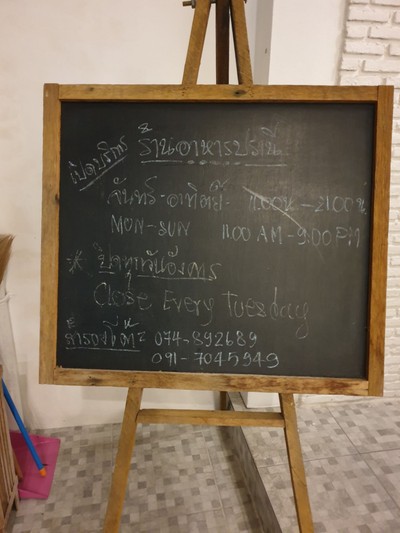 เปิดบริการ ร้านอาหารปราณี
จันทร์-อาทิตย์- 11.00น-21.00น.
MON-SUN 11.00 AM-9.00 PM
* ปิดทุกวันอังคาร
Close Every Tuesday
สำรองโต๊ะ 074-892689
091-7045949